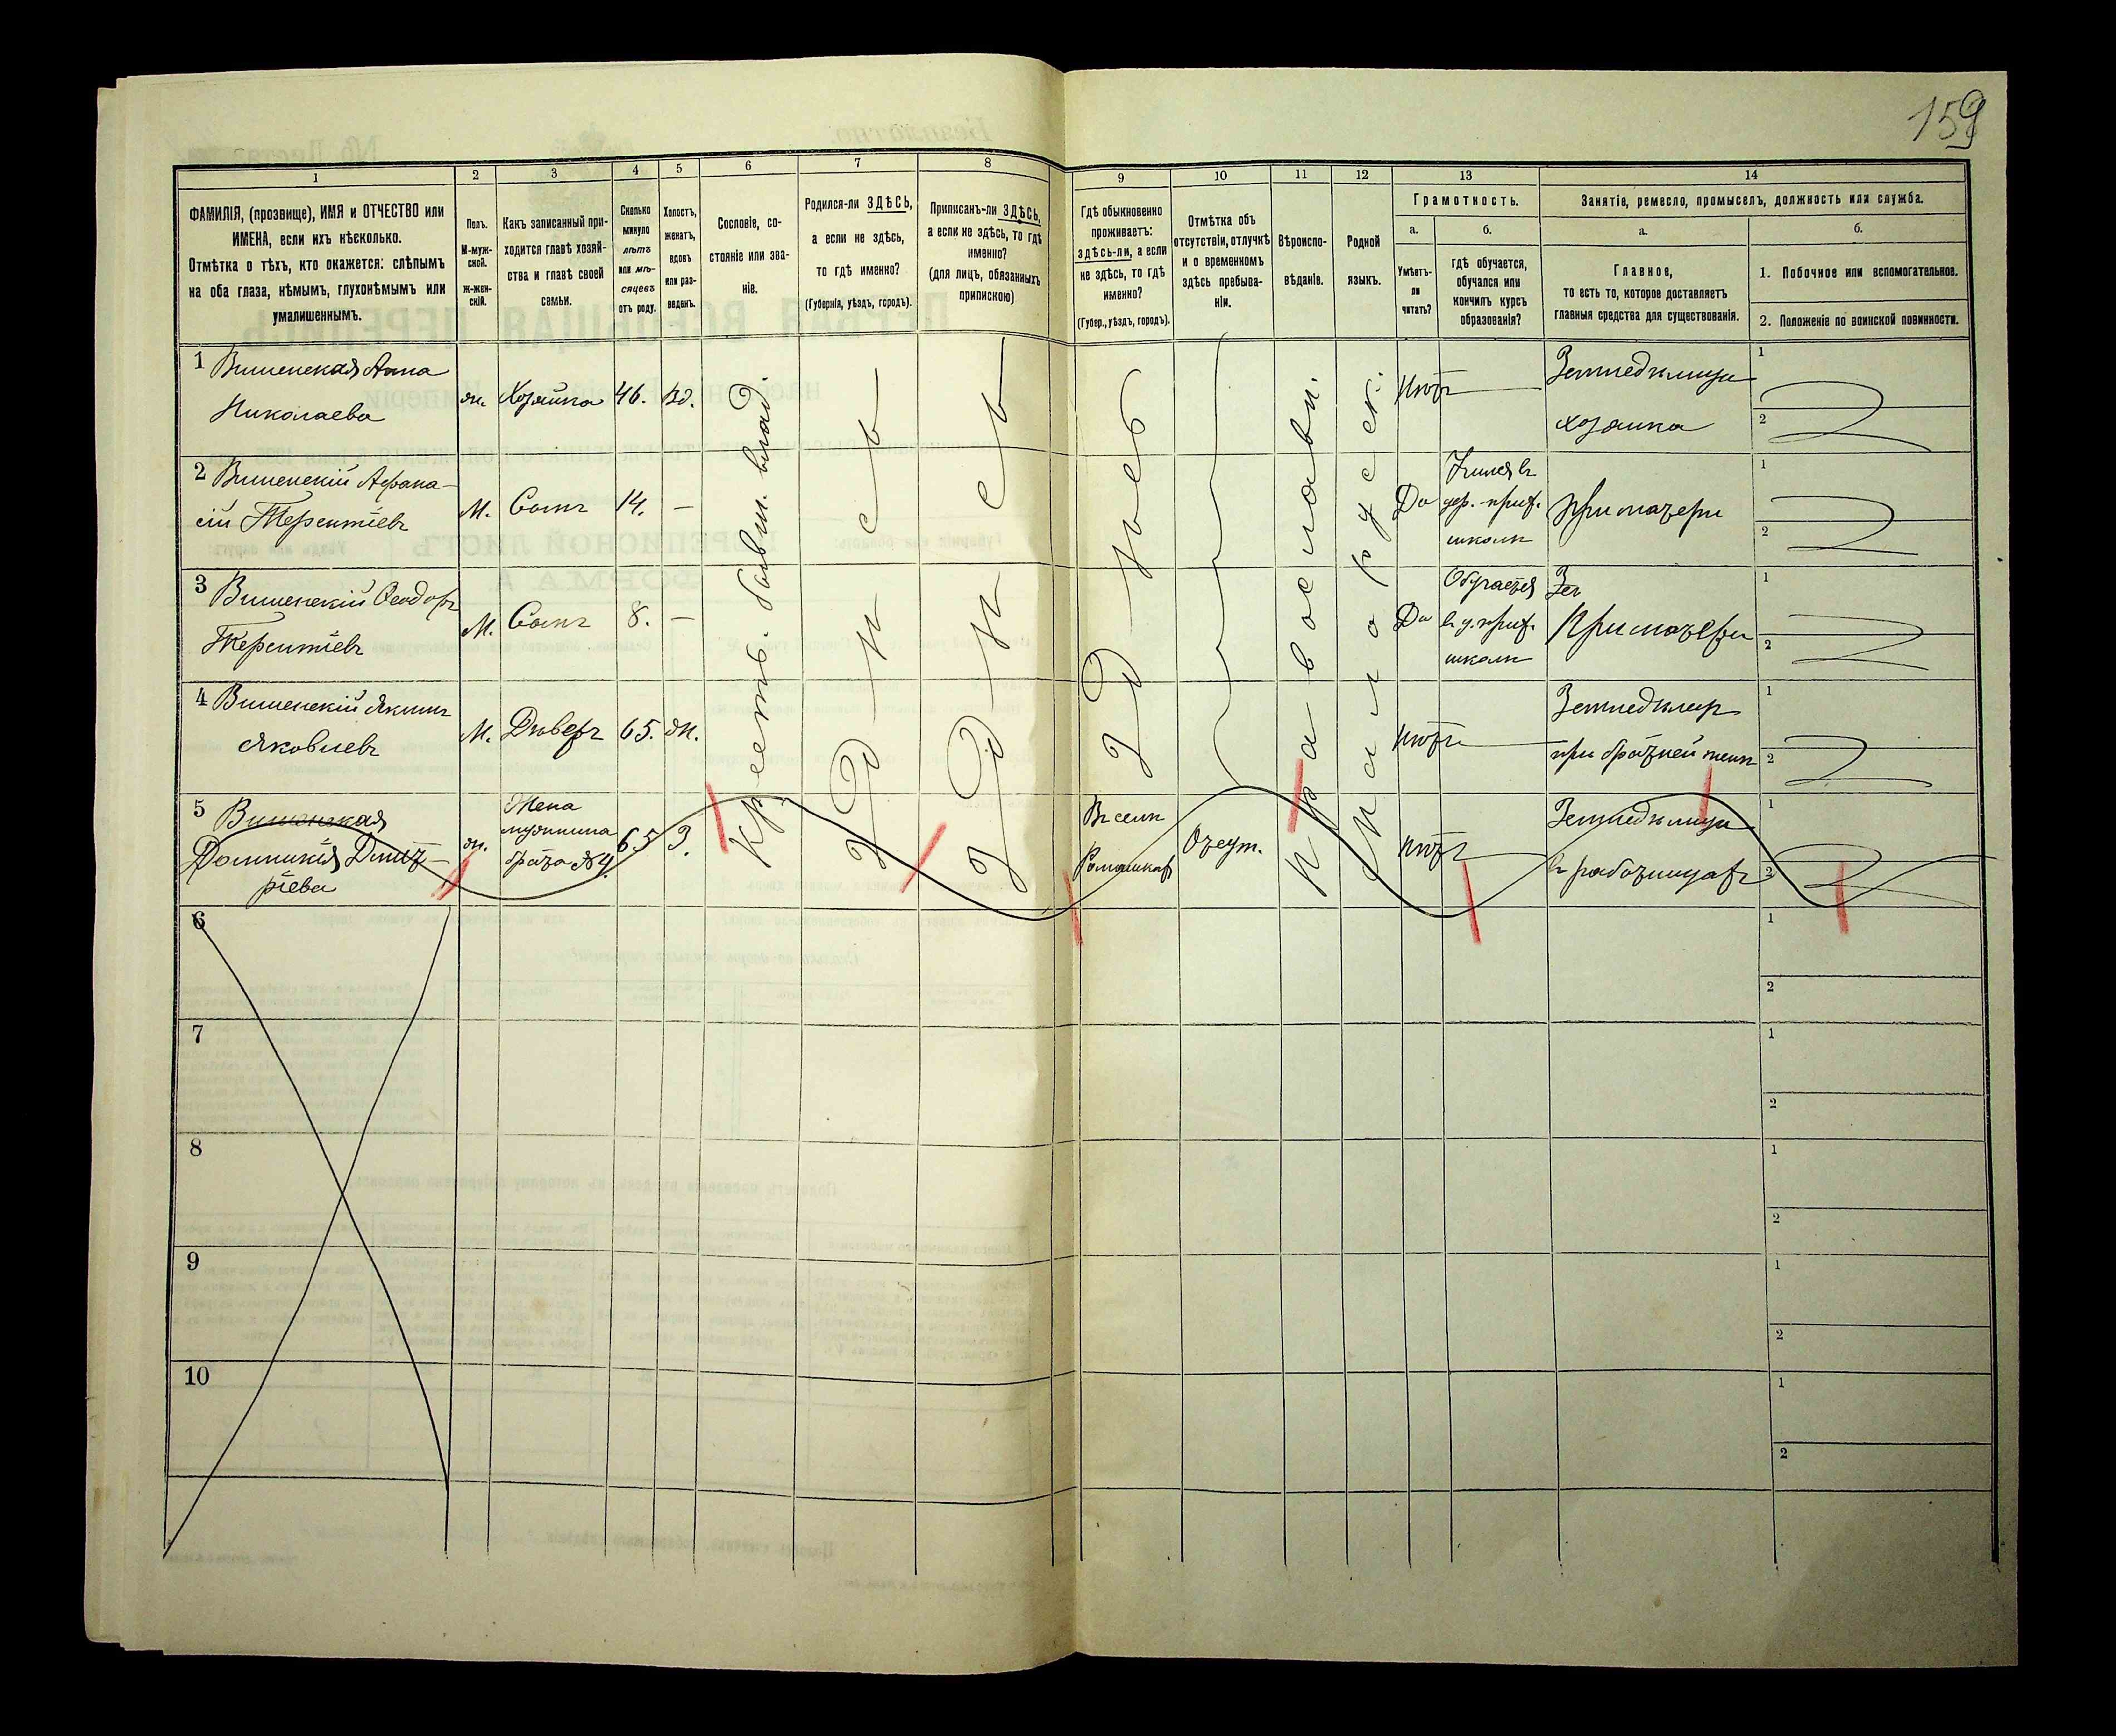 159
1
2
3
4
5
6
7
8
9
10
11
12
13
14
ФАМИЛІЯ, (прозвище), ИМЯ и ОТЧЕСТВО или
ИМЕНА, если ихъ нѣсколько.
Отмѣтка о тѣхъ, кто окажется: слѣпымъ
на оба глаза, нѣмымъ, глухонѣмымъ или
умалишеннымъ.
Полъ.
М-муж-
ской.
Ж-жен-
скій.
Какъ записанный при-
ходится главѣ хозяй-
ства и главѣ своей
семьи.
Сколько
минуло
лѣтъ
или мѣ-
сяцевъ
отъ роду.
Холостъ,
женатъ,
вдовъ
или раз-
веденъ.
Сословіе, со-
стояніе или зва-
ніе.
Родился-ли ЗДѢСЬ,
а если не здѣсь,
то гдѣ именно?
(Губернія, уѣздъ, городъ).
Приписанъ-ли ЗДѢСЬ,
а если не здѣсь, то гдѣ
именно?
(для лицъ, обязанныхъ
припискою)
Гдѣ обыкновенно
проживаетъ:
здѣсь-ли, а если
не здѣсь, то гдѣ
именно?
(Губер., уѣздъ, городъ).
Отмѣтка объ
отсутствіи, отлучкѣ
и о временномъ
здѣсь пребыва-
ніи.
Вѣроиспо-
вѣданіе.
Родной
языкъ.
Грамотность.
а.
Умѣетъ-
ли
читать?
б.
гдѣ обучается,
обучался или
кончилъ курсъ
образованія?
Занятіе, ремесло, промыселъ, должность или служба.
а.
Главное,
то есть то, которое доставляетъ
главныя средства для существованія.
б.
1. Побочное или вспомогательное.
2. Положеніе по воинской повинности.
1 Вишенская Анна
Николаева
ж. Хозяйка 46. Вд.
Крестьь. бывш. влад.
Здѣсь
Здѣсь
Здѣсь
Православн.
Малорусск.
Нѣтъ
Земледѣлица
хозяйка
1
2
2 Вишенскій Афана-
сій Терентіевъ
М. Сынъ 14. —
Да
Учился въ
цер.-прих.
школѣ
При матери
1
2
3 Вишенскій Ѳеодоръ
Терентіевъ
М. Сынъ 8. —
Да
Обучается
въ ц. прих.
школѣ
При матери
1
2
4 Вишенскій Якимъ
Яковлевъ
М. Дѣверь 65. ж.
Нѣтъ
Земледѣлецъ
при братней женѣ
1
2
5 Вишенская
Домникія Дмит-
ріева
ж.
Жена
мужнина
брата №4.
65 З.
Въ селѣ
Ромашкахъ
Отсут.
Нѣтъ
Земледѣлица
въ работницахъ
1
2
6
1
2
7
1
2
8
1
2
9
1
2
10
1
2